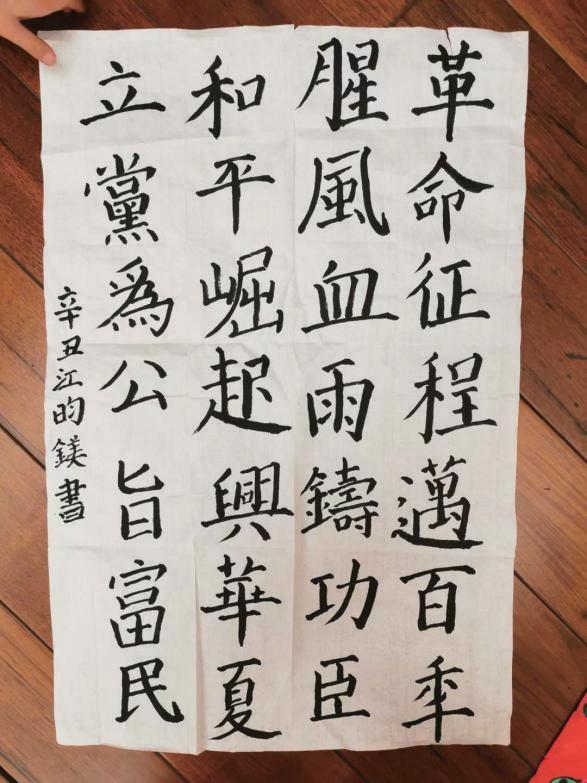 革命征程邁百年
腥風血雨鑄功臣
和平崛起興華夏
立黨為公旨富民
辛丑江昀鎂書